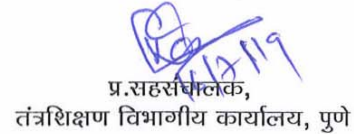 11/7/19
प्र.सहसंचालक,
तंत्रशिक्षण विभागीय कार्यालय, पुणे